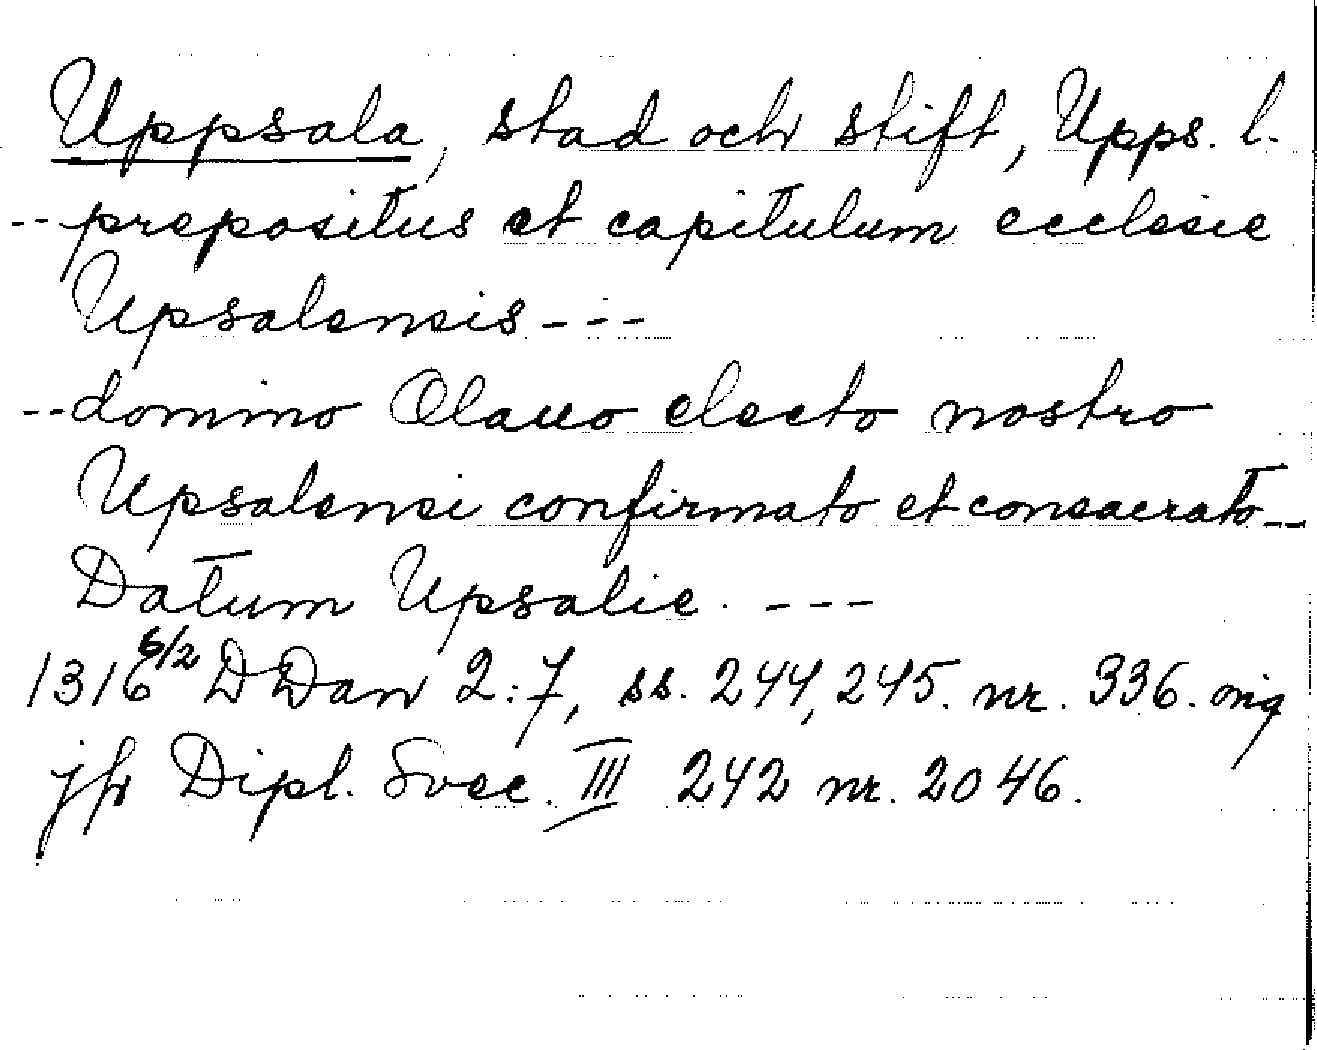 Uppsala, stad och stift, Upps. l.
-- prepositus et capitulum ecclesie
Upsalensis ---
-- domino Olauo electo nostro
Upsalensi confirmato et consacrato --
Datum Upsalie. ---
1316 6/2 DDan 2:7, ss. 244, 245. nr. 336. orig
jfr Dipl. Svec. III 242 nr. 2046.